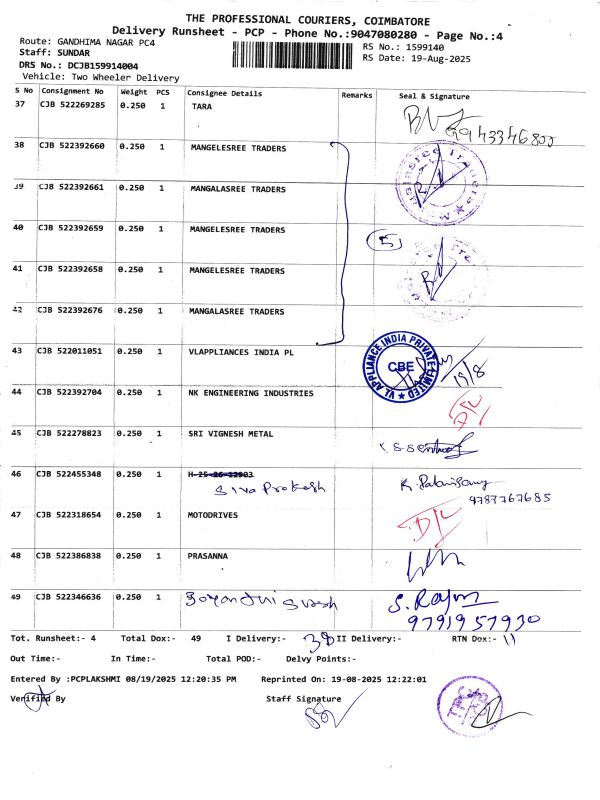 THE PROFESSIONAL COURIERS, COIMBATORE
Delivery Runsheet - PCP - Phone No.:9047080280 - Page No.:4
Route: GANDHIMA NAGAR PC4
RS No.: 1599140
Staff: SUNDAR
RS Date: 19-Aug-2025
DRS No.: DCJB159914004
Vehicle: Two Wheeler Delivery
S No Consignment No Weight PCS Consignee Details Remarks Seal & Signature
37 CJB 522269285 0.250 1 TARA
943346800
38 CJB 522392660 0.250 1 MANGELESREE TRADERS
39 CJB 522392661 0.250 1 MANGALASREE TRADERS
40 CJB 522392659 0.250 1 MANGELESREE TRADERS
5
41 CJB 522392658 0.250 1 MANGELESREE TRADERS
42 CJB 522392676 0.250 1 MANGALASREE TRADERS
43 CJB 522011051 0.250 1 VLAPPLIANCES INDIA PL
VL APPLIANCE INDIA PRIVATE LIMITED
CBE
19/8
44 CJB 522392704 0.250 1 NK ENGINEERING INDUSTRIES
D/L
45 CJB 522278823 0.250 1 SRI VIGNESH METAL
46 CJB 522455348 0.250 1 H-25-86-12903
Siva Prakesh
9787767685
47 CJB 522318654 0.250 1 MOTODRIVES D/L
48 CJB 522386838 0.250 1 PRASANNA
49 CJB 522346636 0.250 1 S. Rajan
9791957930
Tot. Runsheet:- 4 Total Dox:- 49 I Delivery:- 38 II Delivery:- RTN Dox:- 11
Out Time:- In Time:- Total POD:- Delvy Points:-
Entered By :PCPLAKSHMI 08/19/2025 12:20:35 PM Reprinted On: 19-08-2025 12:22:01
Verified By Staff Signature